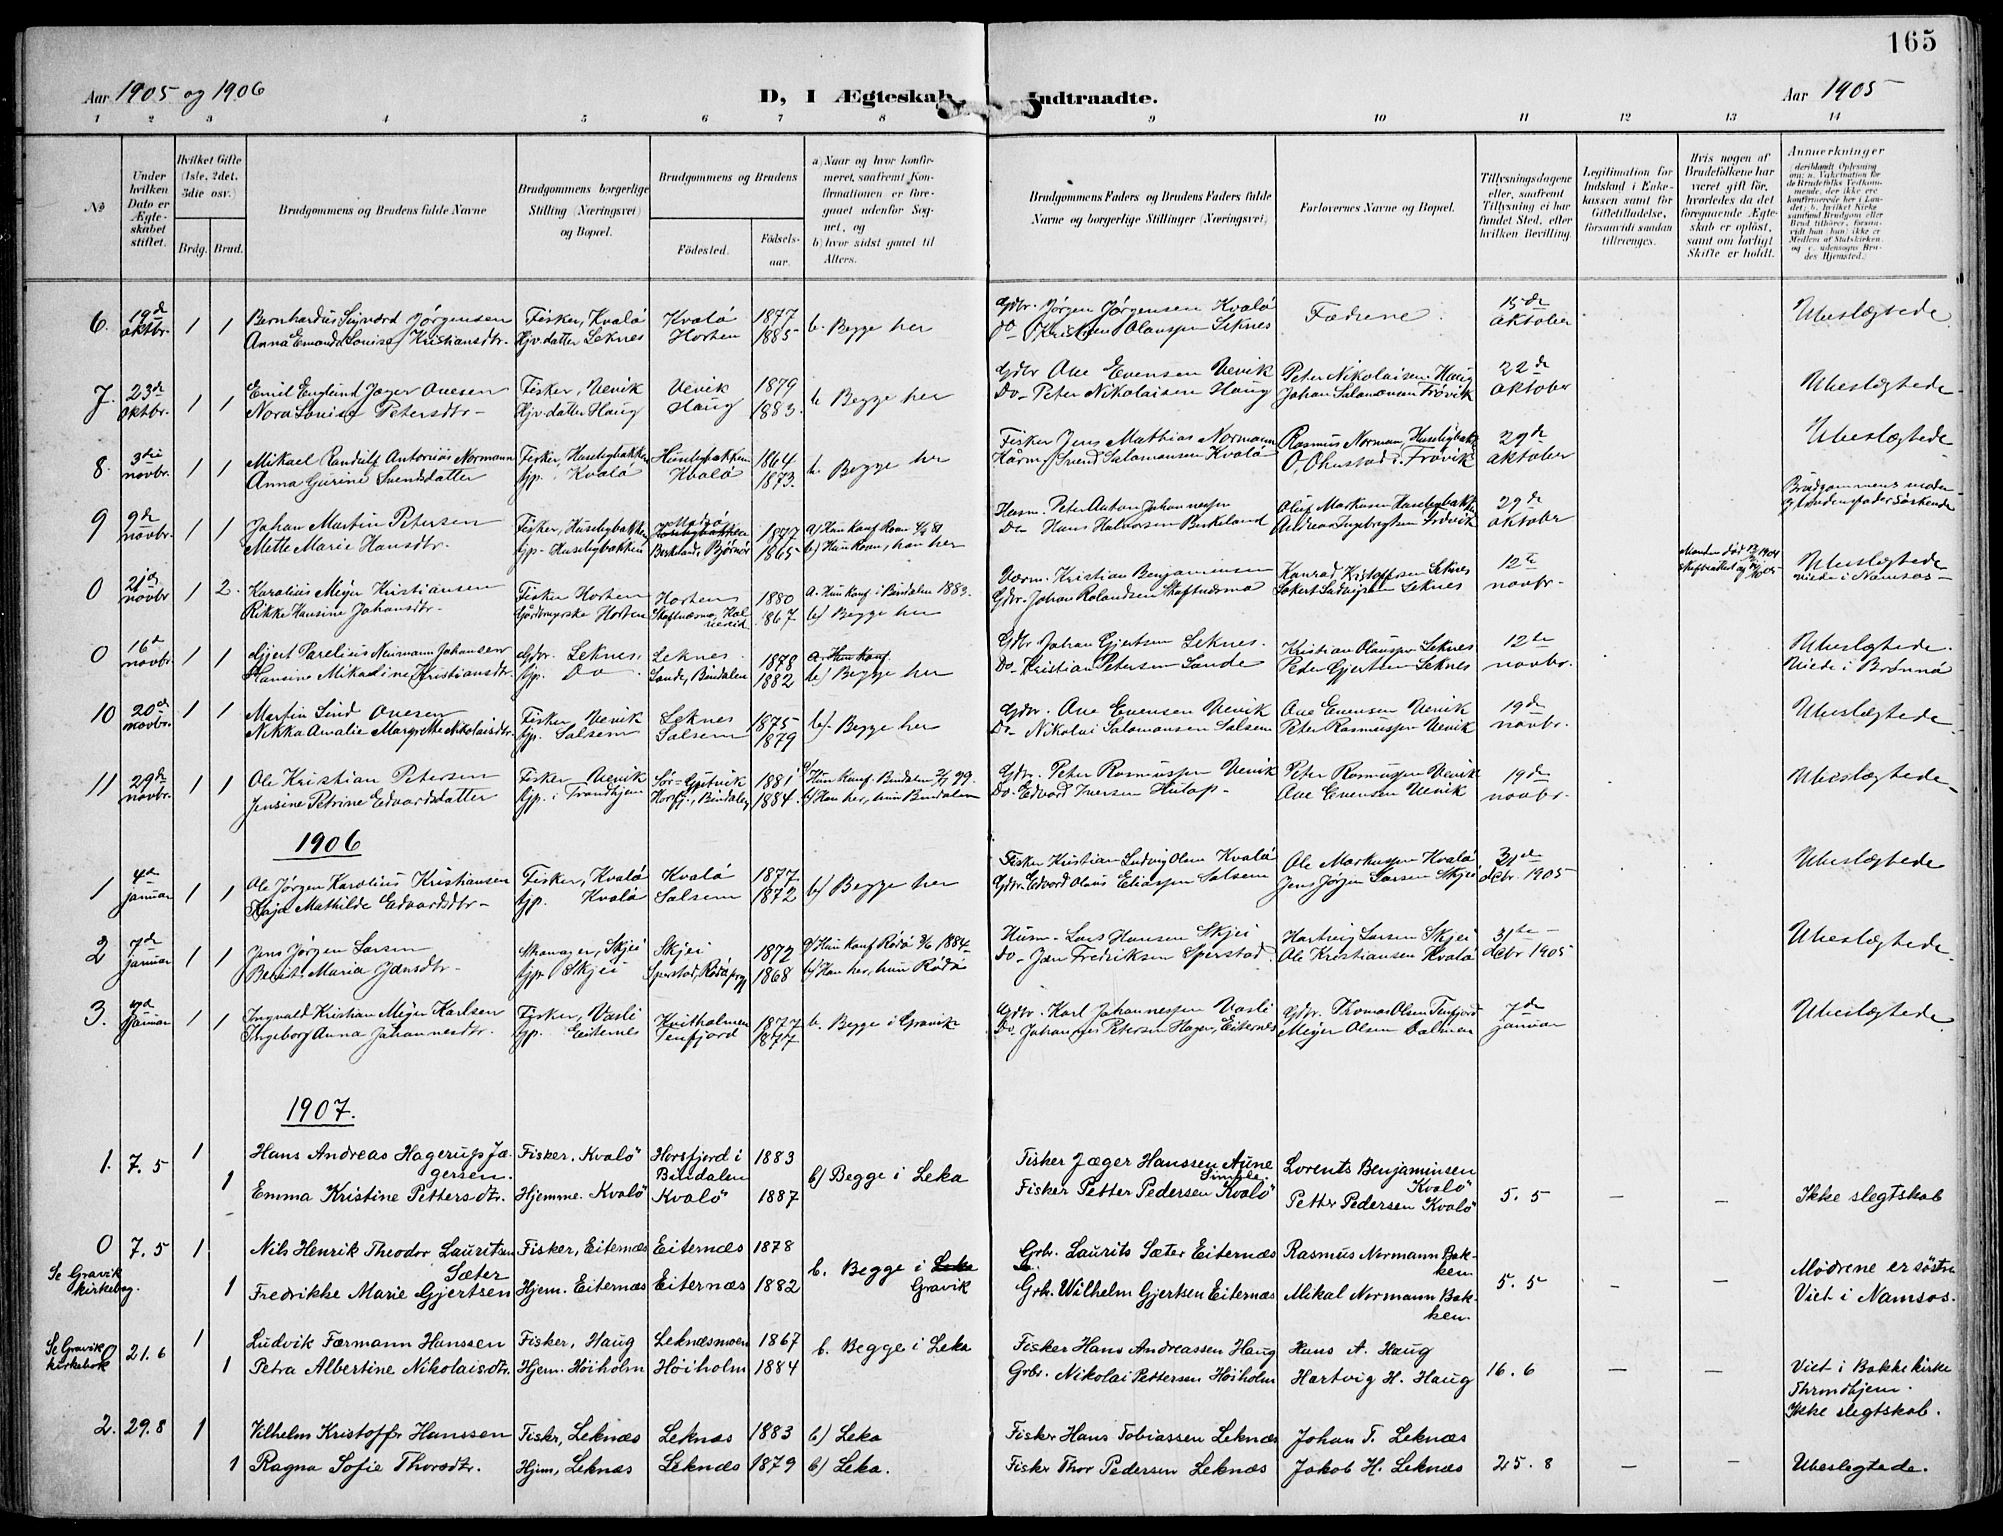 165
Aar 1905 og 1906
D, I Ægteskab Indtraadte.
Aar 1905
1 2 3 4 5 6 7 8 9 10 11 12 13 14
No
Under hvilken Dato er Ægteskabet stiftet.
Hvilket Gifte (1ste, 2det, 3die osv.)
Brdg. Brud.
Brudgommens og Brudens fulde Navne
Brudgommens borgerlige Stilling (Næringsvei) og Bopæl.
Brudgommens og Brudens
Fødested. Fødselsaar.
a) Naar og hvor konfirmeret, saafremt Konfirmationen er foregaaet udenfor Sognet, og
b) hvor sidst gaaet til Alters.
Brudgommens Faders og Brudens Faders fulde Navne og borgerlige Stillinger (Næringsvei)
Forlovernes Navne og Bopæl.
Tillysningsdagene eller, saafremt Tillysning ei har fundet Sted, efter hvilken Bevilling
Legitimation for Indskud i Enkekassen samt for Giftetilladelse, forsaavidt saadan tiltrænges.
Hvis nogen af Brudefolkene har været gift før, hvorledes da det foregaaende Ægteskab er opløst, samt om lovligt Skifte er holdt.
Anmerkninger
6. 19de oktbr. 1 1 Bernhardus Sigvard Jørgensen Fisker, Kvalø Kvalø 1877 b. Begge her Gdbr. Jørgen Jørgensen Kvalø Fædrene. 15de oktober Ubeslægtede
Anna Emanda Louise Kristiansdtr. Hjv. datter Leknes Horten 1885 Do Kristian Olaussen Leknes
7. 23de oktbr. 1 1 Emil Englund Jæger Ovesen Fisker, Uevik Uevik 1879 b Begge her Gdbr Ove Evensen Uevik Peter Nikolaisen Haug 22de oktober Ubeslegtede
Nora Louise Petersdtr Hjv datter Haug Haug 1883. Do Peter Nikolaisen Haug Johan Salamonsen Frøvik
8. 3die novbr. 1 1 Mikael Randulf Antonius Normann Fisker, Husebybakken Husebybakken 1864 b. Begge her Fisker Jens Mathias Normann Rasmus Norman, Husebybakk 29de oktober Ubeslægtede
Anna Gurine Svendsdatter Gp. Kvalø Kvalø 1873. Svend Salamonsen Kvalø Frøvik
9 9de novbr. 1 1 Johan Martin Petersen Fisker, Husebybakken Husebybakken Husm. Peter Anton Johannessen Oluf Markusen Husebybakk 29de oktober Brudgommens moder og brudens fader Søskende
Mette Marie Hansdtr. Gp. Husebybakken Birkland, Bjørnør 1865 b) Hun Roan, han her Do Hans Halvorsen Birkeland
0 21de novbr 1 2. Karolius Meyer Kristiansen Fisker Horten Horten 1880 a. Hun konf. i Bindalen 1883. Kristian Benjaminsen Konrad Kristoffersen Leknes 12te novbr. Manden død 1904 Ubeslægtede viede i Namsos
Rikke Hansine Johansdtr. Horten 1867 b) Begge her Gdbr. Johan Rolandsen Skaftnesmo Leknes
0 16de novbr. 1 1 Gjert Parelius Neumann Johansen Gdbr. Leknes, Leknes. 1878 a. Hun konf. Gdbr Johan Gjertsen Leknes. Kristian Olaussen Leknes 12te novbr. Ubeslægtede.
Hansine Mikadine Kristiansdtr. Gp. Do Sande, Bindalen 1882 b) Begge her Do Kristian Petersen Sande Peter Gjertsen Leknes Viede i Brønnø
10 20de novbr. 1 1 Martin Lind Ovesen Fisker Uevik Leknes 1875 b). Begge her Gdbr. Ove Evensen Uevik Ove Evensen Uevik 19de novbr. Ubeslægtede
Nikka Amalie Margrethe Nikolaisdtr. Gp. Salsem Salsem 1879 Do Nikolai Salamonsen Salsem Peter Rasmussen Uevik
11 29de novbr. 1 1 Ole Kristian Petersen Fisker Uevik Sør-Gjetvik 1881 a) Hun konf. Bindalen Gdbr. Peter Rasmussen Uevik Peter Rasmussen Uevik 19de novbr. Ubeslægtede
Jensine Petrine Edvardsdatter Gp. i Trondhjem Horsfj., Bindalen 1884. b) Han her, hun Bindalen Do. Edvard Iversen Hutop Ove Evensen Uevik
1906
1 4de januar 1 1 Ole Jørgen Karolius Kristiansen Fisker, Kvalø Kvalø 1877 b) Begge her Fisker Kristian Ludvig Olsen Kvalø Ole Markussen Kvalø 31de debr. 1905 Ubeslægtede
Kaja Mathilde Edvardsdtr Gp. Kvalø Salsem 1872 Gdbr. Edvard Olaus Eliassen Salsem Jens Jørgen Larsen Skjei
2 7de januar 1 1 Jens Jørgen Larsen Skomager, Skjei Skjei 1872 a) Hun konf Rødø 1884 Husm. Lars Hansen Skjei Hartvig Larsen Skjei 31te debr 1905 Ubeslægtede
Berit Maria Jensdtr Gp. Skjei Sperstad, Rødø prgj 1868 b) Han her, hun Rødø Do Jens Fredriksen Sperstad. Ole Kristiansen Kvalø
3. 7de Januar 1 1 Ingvald Kristian Meyer Karlsen Fisker, Vasli Kvitholmen 1877 b. Begge i Gravik Gdbr. Karl Johannessen Vasli Gdbr. Thomas Olsen Terfjord 7de januar Ubeslægtede
Ingeborg Anna Johannesdtr. Gp. Eiternes Terfjord 1877 Do. Johannes Petersen Hager, Eiternes Meyer Olsen Dalmar
1907.
1. 7. 5 1 Hans Andreas Hagerup Jægersen. Fisker. Kvalø Horsfjord i Bindalen 1883 b) Begge i Leka Fisker Jæger Hanssen Aune Simle Lorents Benjaminsen Kvalø 5. 5 — — Ikke slegtskab
1 Emma Kristine Pettersdtr. Hjemme. Kvalø Kvalø 1887 Fisker Petter Pedersen Kvalø Petter Pedersen Kvalø
0 7. 5 1 Nils Henrik Theodor Lauritsen Sæter Fisker, Eiternæs Eiternæs 1878 b. Begge i Leka Gravik Grbr. Laurits Sæter Eiternæs Rasmus Normann Bakken 5. 5 — — Mødrene er søstre
Se Gravik kirkebog. 1 Fredrikke Marie Gjertsen Hjem. Eiternæs Eiternæs 1882 Grb. Wilhelm Gjertsen Eiternæs Mikal Normann Bakken. Viet i Namsos.
Se Gravik kirkebok 0 21. 6 1 Ludvik Færmann Hanssen Fisker, Haug Leknæsmoen 1867 b. Begge i Leka Fisker Hans Andreassen Haug Hans A. Haug 16. 6 — — Viet i Bakke kirke Throndhjem. Ikke slegtskab.
1 Petra Albertine Nikolaisdtr. Hjem. Høiholm Høiholm 1884 Grbr. Nikolai Pettersen Høiholm Hartvig H. Haug
2. 29. 8 1 Vilhelm Kristoffer Hanssen Fisker, Leknæs Leknæs 1883 b) Leka Fisker Hans Tobiassen Leknæs Johan T. Leknæs 25. 8 — — Ubeslegtede.
1 Ragna Sofie Thorsdtr. Hjem, Leknæs Leknæs 1879 b) Leka. Fisker Thor Pedersen Leknæs Jakob H. Leknæs